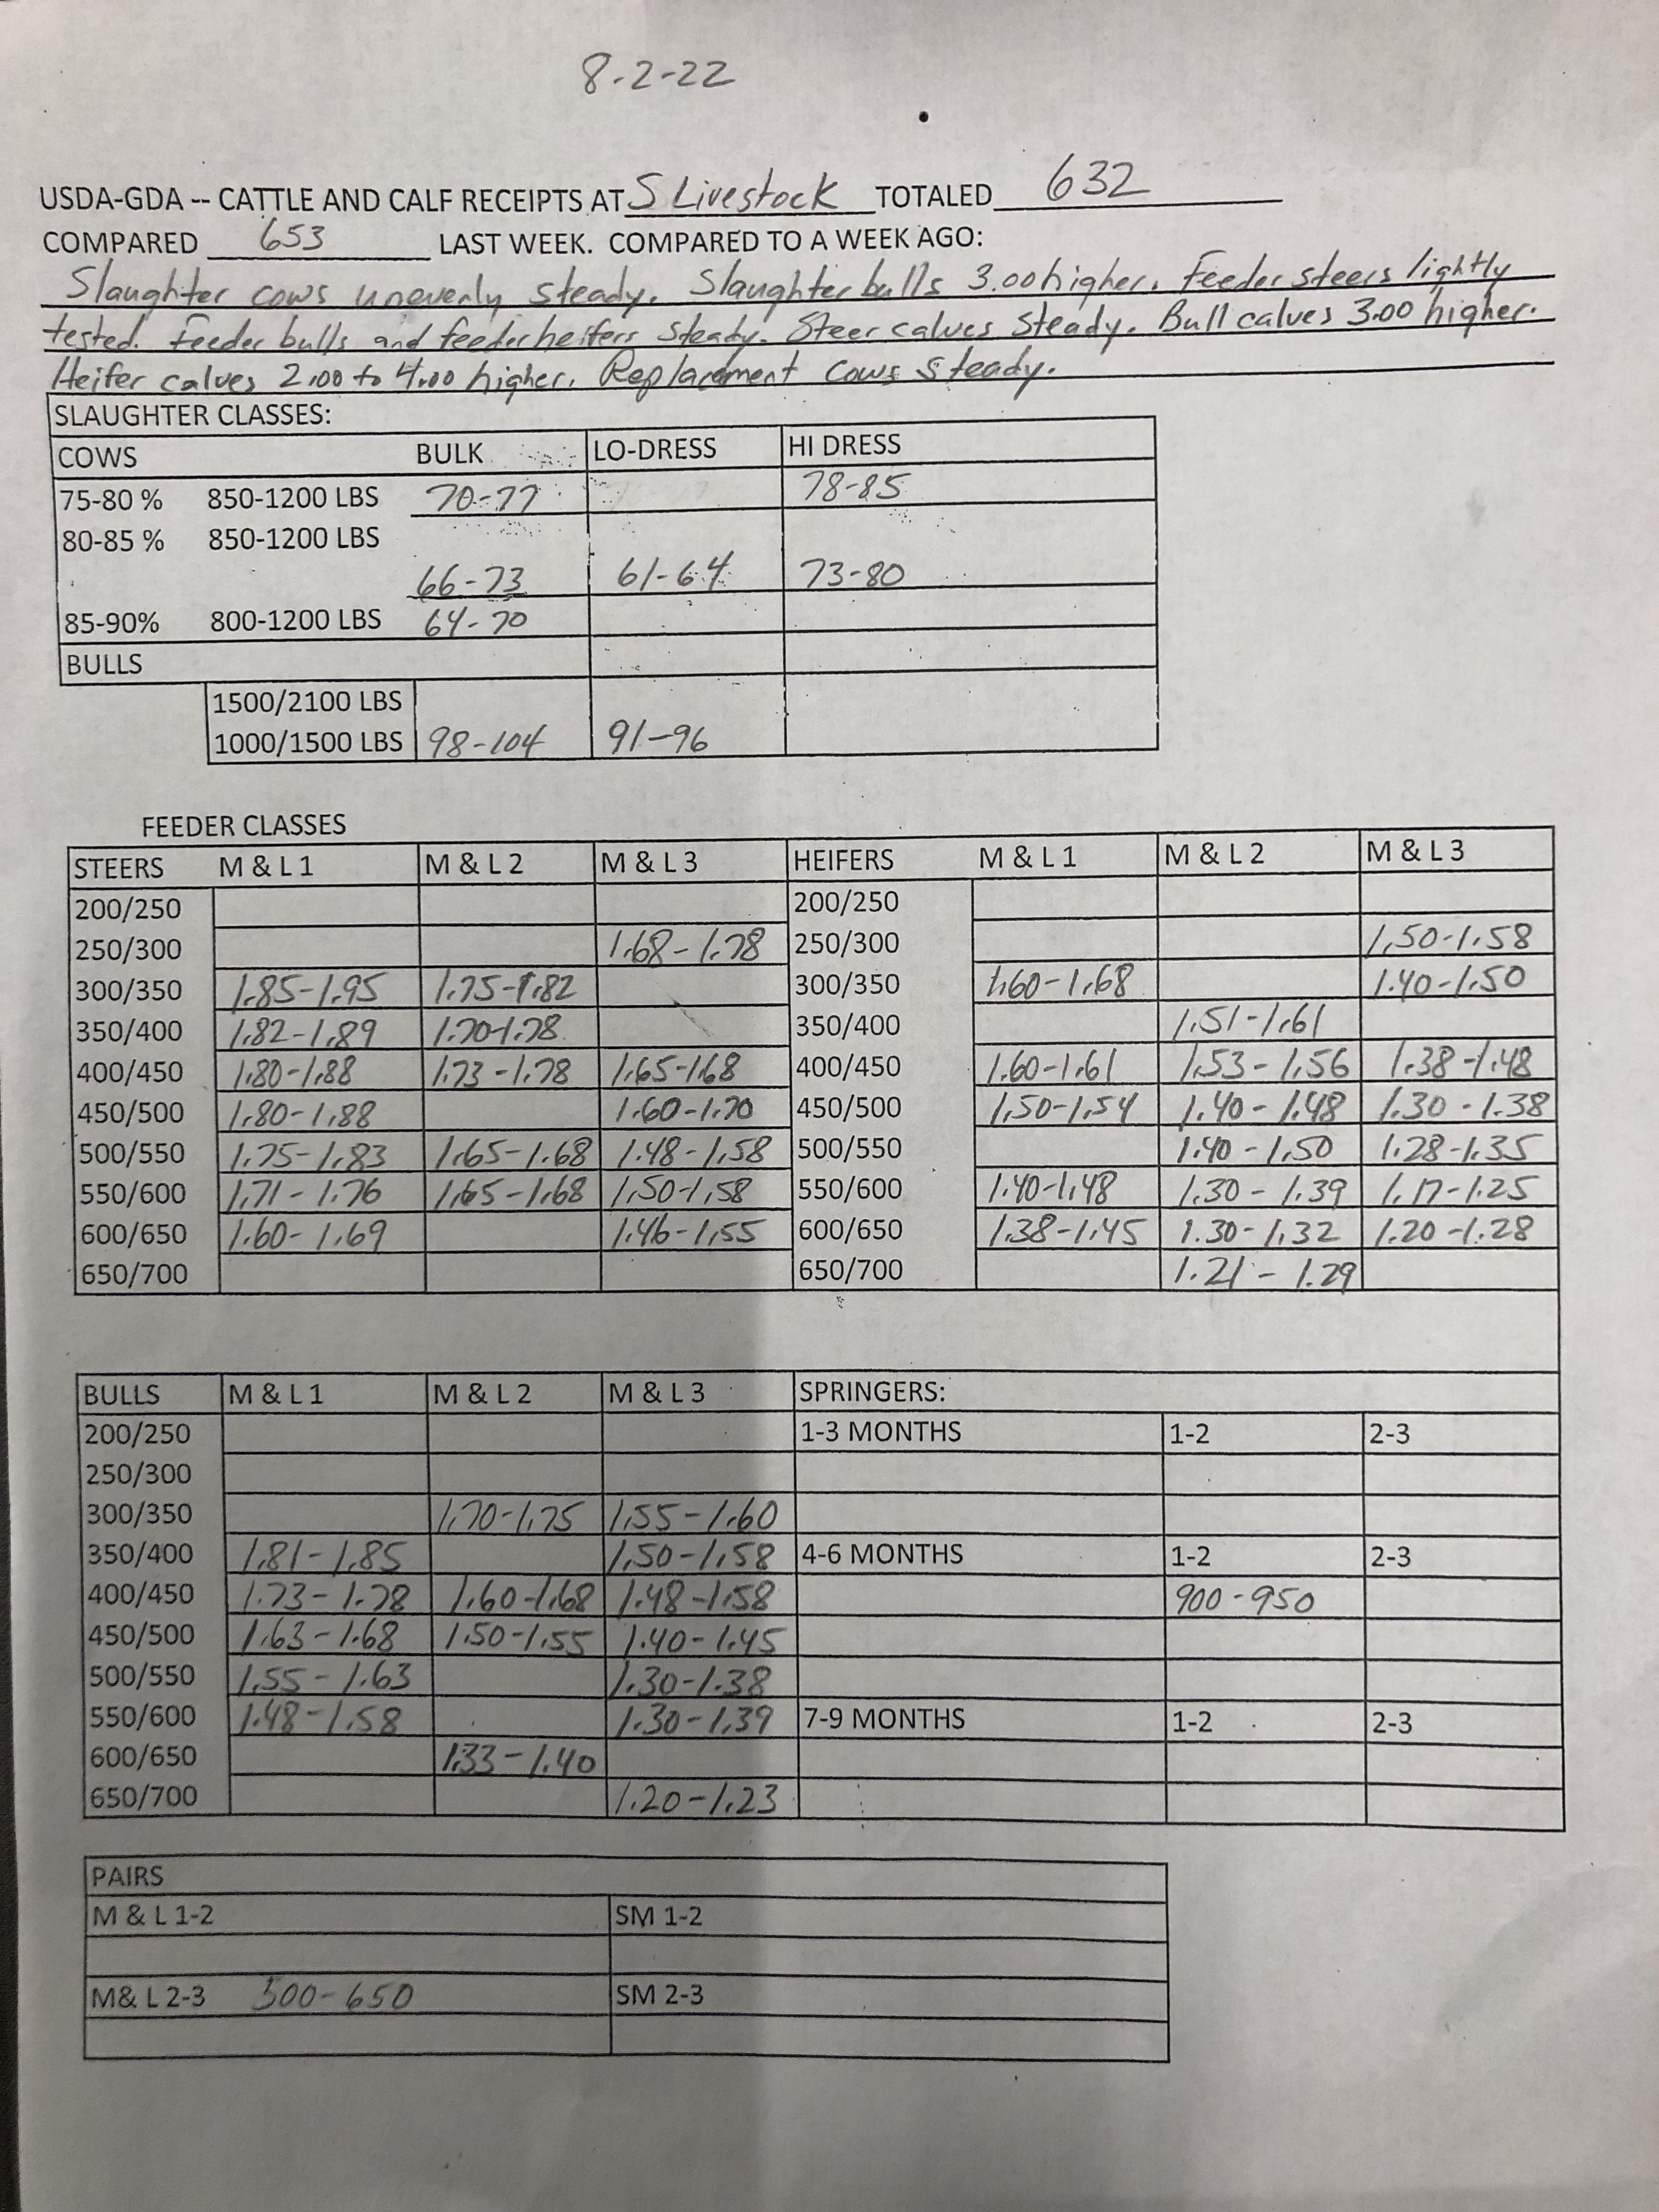 8-2-22
USDA-GDA -- CATTLE AND CALF RECEIPTS AT S Livestock TOTALED 632
COMPARED 653 LAST WEEK. COMPARED TO A WEEK AGO:
Slaughter cows unevenly steady. Slaughter bulls 3.00 higher. Feeder steers lightly
tested. Feeder bulls and feeder heifers steady. Steer calves steady. Bull calves 3.00 higher.
Heifer calves 2.00 to 4.00 higher. Replacement cows steady.
SLAUGHTER CLASSES:
COWS BULK LO-DRESS HI DRESS
75-80 % 850-1200 LBS 70-77 78-85
80-85 % 850-1200 LBS
66-73 61-64 73-80
85-90% 800-1200 LBS 64-70
BULLS
1500/2100 LBS
1000/1500 LBS 98-104 91-96
FEEDER CLASSES
STEERS M & L 1 M & L 2 M & L 3 HEIFERS M & L 1 M & L 2 M & L 3
200/250 200/250
250/300 1.68-1.78 250/300 1.50-1.58
300/350 1.85-1.95 1.75-1.82 300/350 1.60-1.68 1.40-1.50
350/400 1.82-1.89 1.70-1.78 350/400 1.51-1.61
400/450 1.80-1.88 1.73-1.78 1.65-1.68 400/450 1.60-1.61 1.53-1.56 1.38-1.48
450/500 1.80-1.88 1.60-1.70 450/500 1.50-1.54 1.40-1.48 1.30-1.38
500/550 1.75-1.83 1.65-1.68 1.48-1.58 500/550 1.40-1.50 1.28-1.35
550/600 1.71-1.76 1.65-1.68 1.50-1.58 550/600 1.40-1.48 1.30-1.39 1.17-1.25
600/650 1.60-1.69 1.46-1.55 600/650 1.38-1.45 1.30-1.32 1.20-1.28
650/700 650/700 1.21-1.29
BULLS M & L 1 M & L 2 M & L 3 SPRINGERS:
200/250 1-3 MONTHS 1-2 2-3
250/300
300/350 1.70-1.75 1.55-1.60
350/400 1.81-1.85 1.50-1.58 4-6 MONTHS 1-2 2-3
400/450 1.73-1.78 1.60-1.68 1.48-1.58 900-950
450/500 1.63-1.68 1.50-1.55 1.40-1.45
500/550 1.55-1.63 1.30-1.38
550/600 1.48-1.58 1.30-1.39 7-9 MONTHS 1-2 2-3
600/650 1.33-1.40
650/700 1.20-1.23
PAIRS
M & L 1-2 SM 1-2
M& L 2-3 500-650 SM 2-3